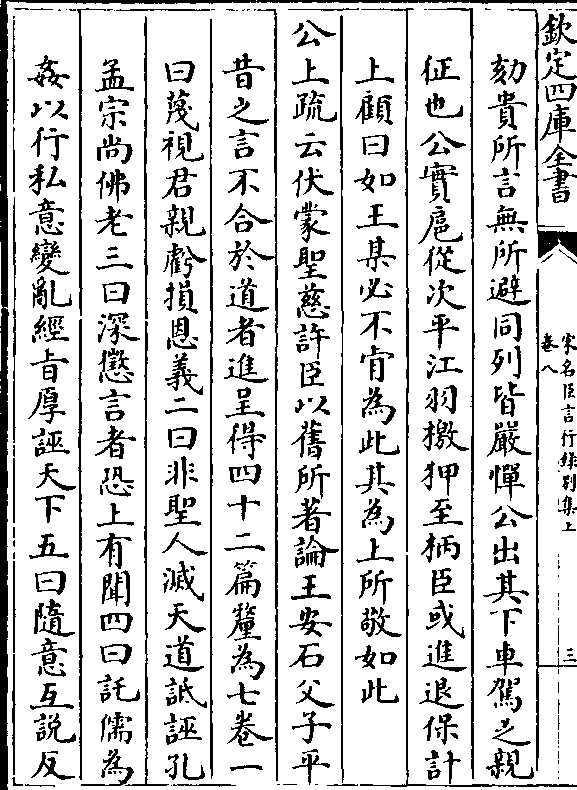 欽定四庫全書
宋名臣言行録別集上
卷八
三
劾貴所言無所避同列皆嚴憚公出其下車駕之親
征也公實扈從次平江羽檄狎至柄臣或進退保計
上顧曰如王某必不肯為此其為上所敬如此
公上疏云伏蒙聖慈許臣以舊所著論王安石父子平
昔之言不合於道者進呈得四十二篇釐為七卷一
曰蔑視君親虧損恩義二曰非聖人滅天道詆誣孔
孟宗尚佛老三曰深懲言者恐上有聞四曰託儒為
姦以行私意變亂經旨厚誣天下五曰隨意互說反